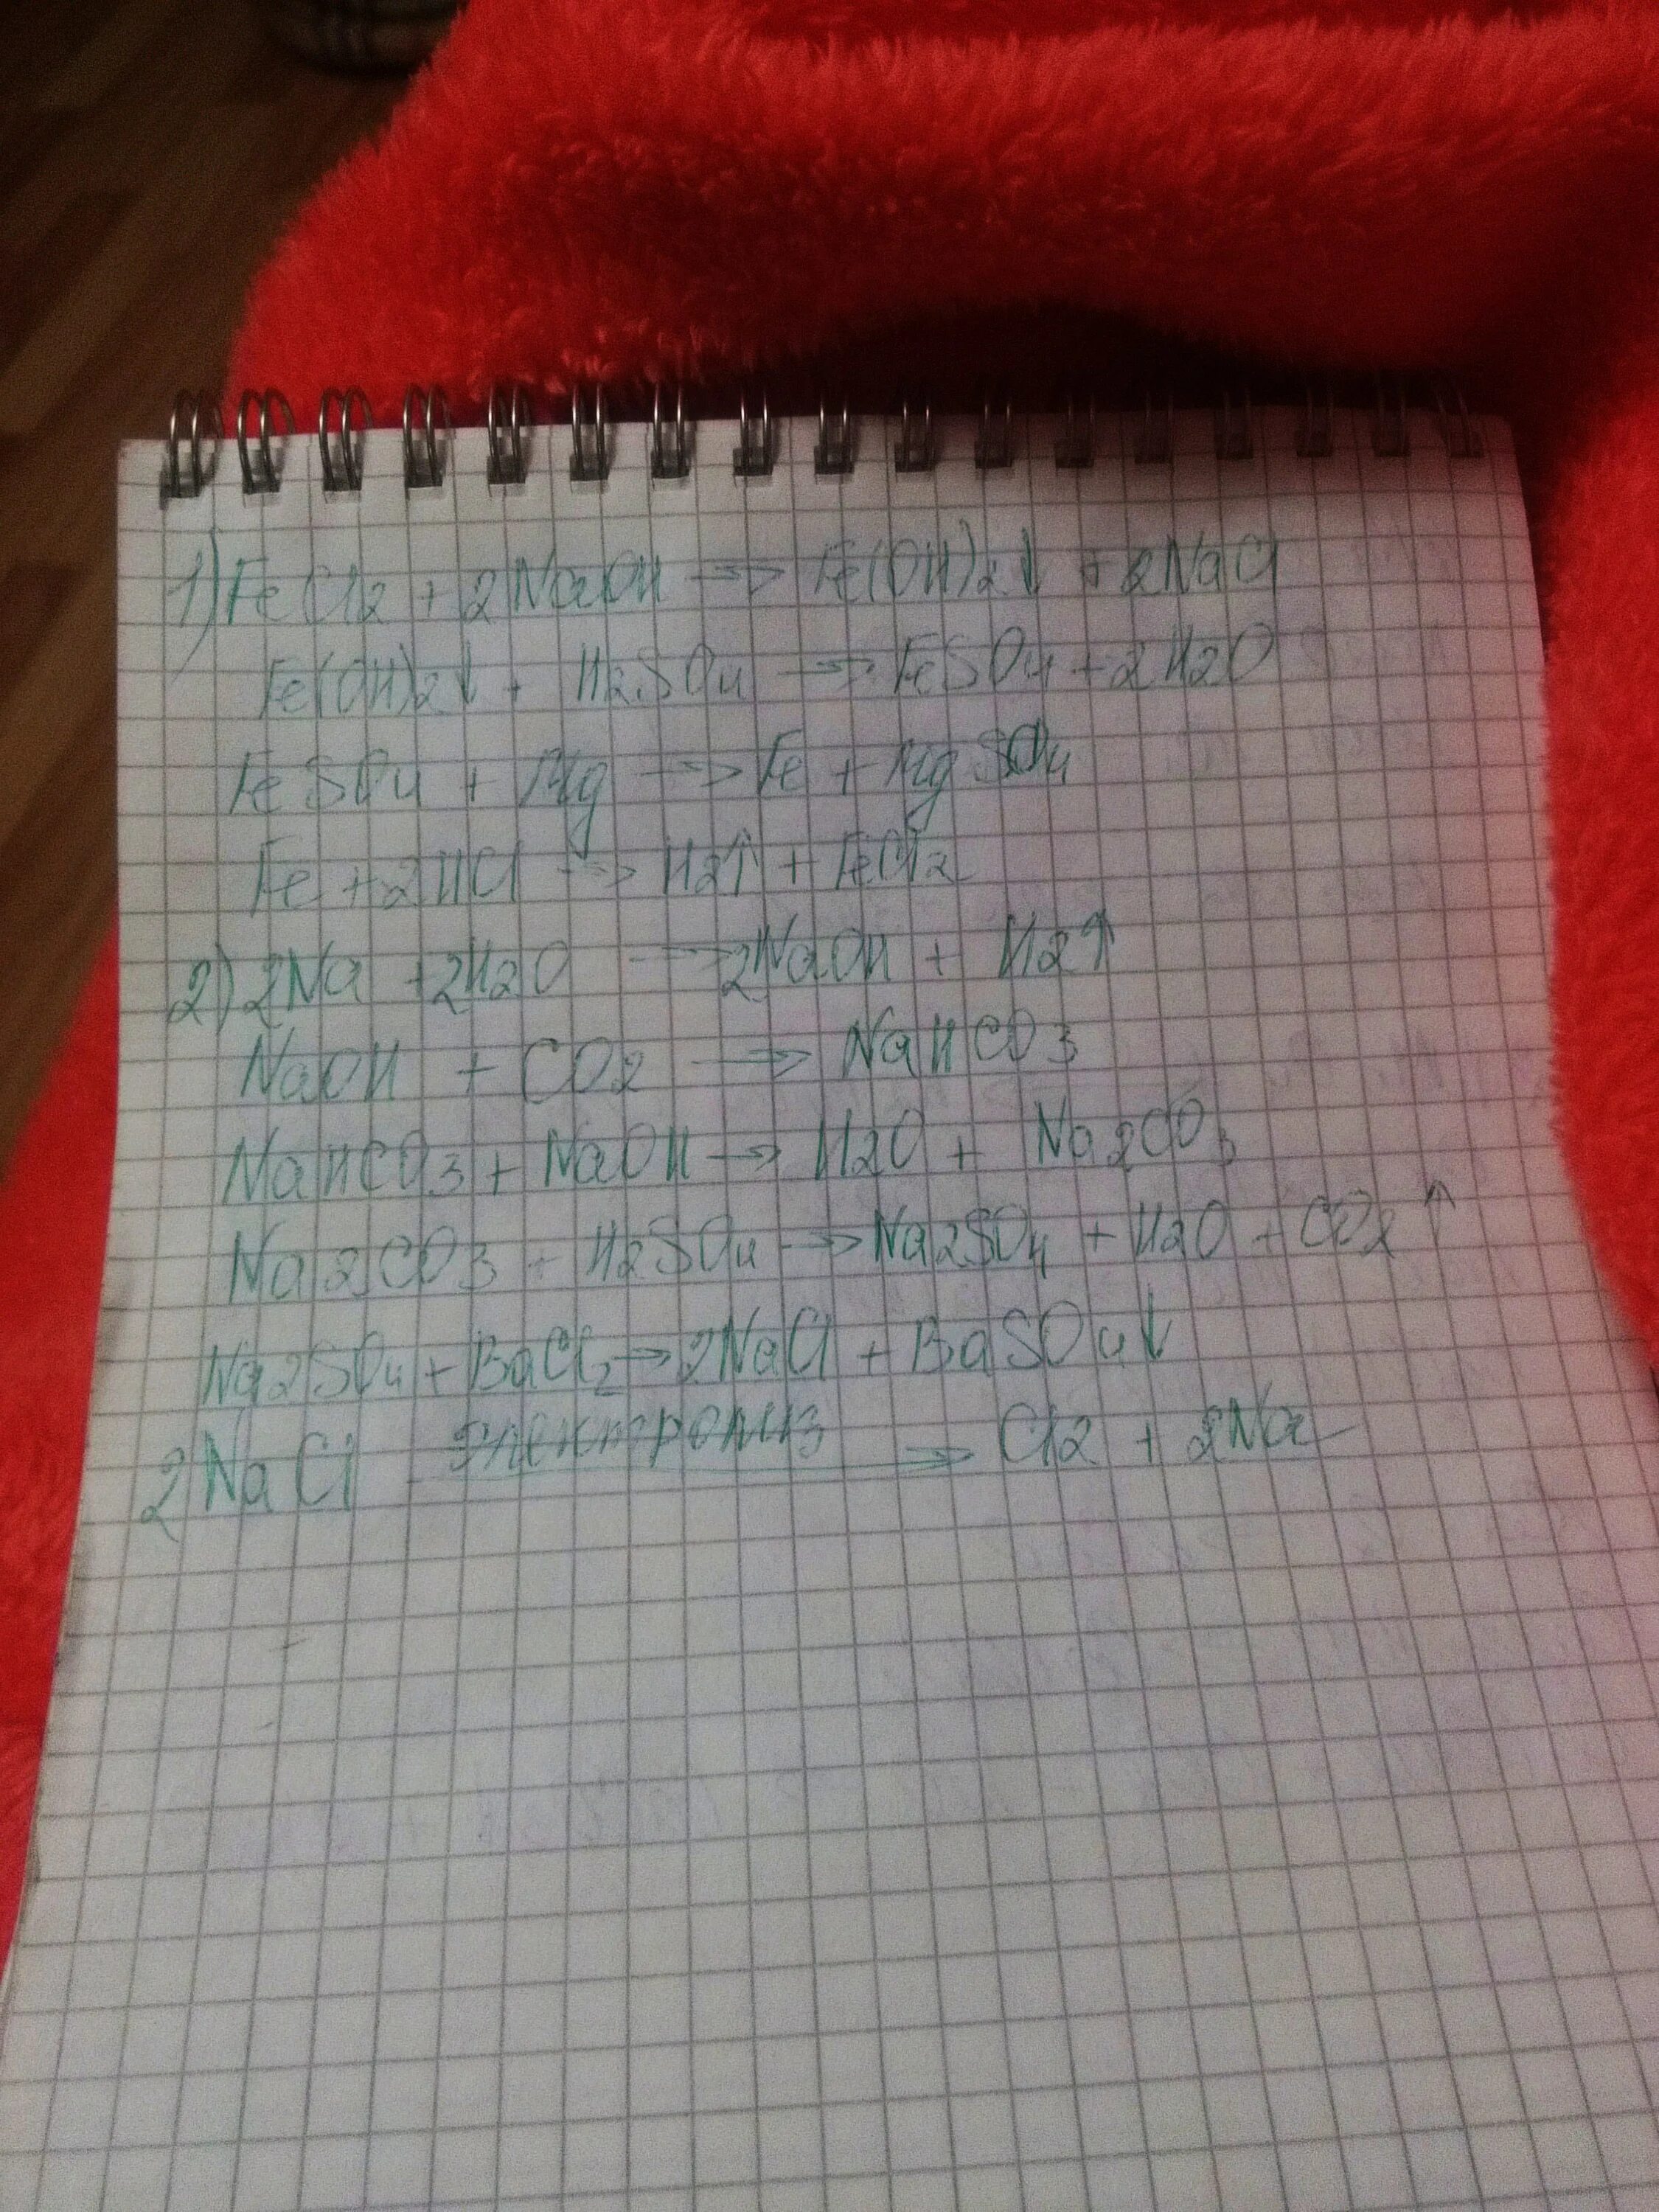 1) FeCl2 + 2NaOH → Fe(OH)2↓ + 2NaCl
Fe(OH)2↓ + H2SO4 → FeSO4 + 2H2O
FeSO4 + Mg → Fe + MgSO4
Fe + 2HCl → H2↑ + FeCl2
2) 2Na + 2H2O → 2NaOH + H2↑
NaOH + CO2 → NaHCO3
NaHCO3 + NaOH → H2O + Na2CO3
Na2CO3 + H2SO4 → Na2SO4 + H2O + CO2↑
Na2SO4 + BaCl2 → 2NaCl + BaSO4↓
2NaCl электролиз → Cl2 + 2Na